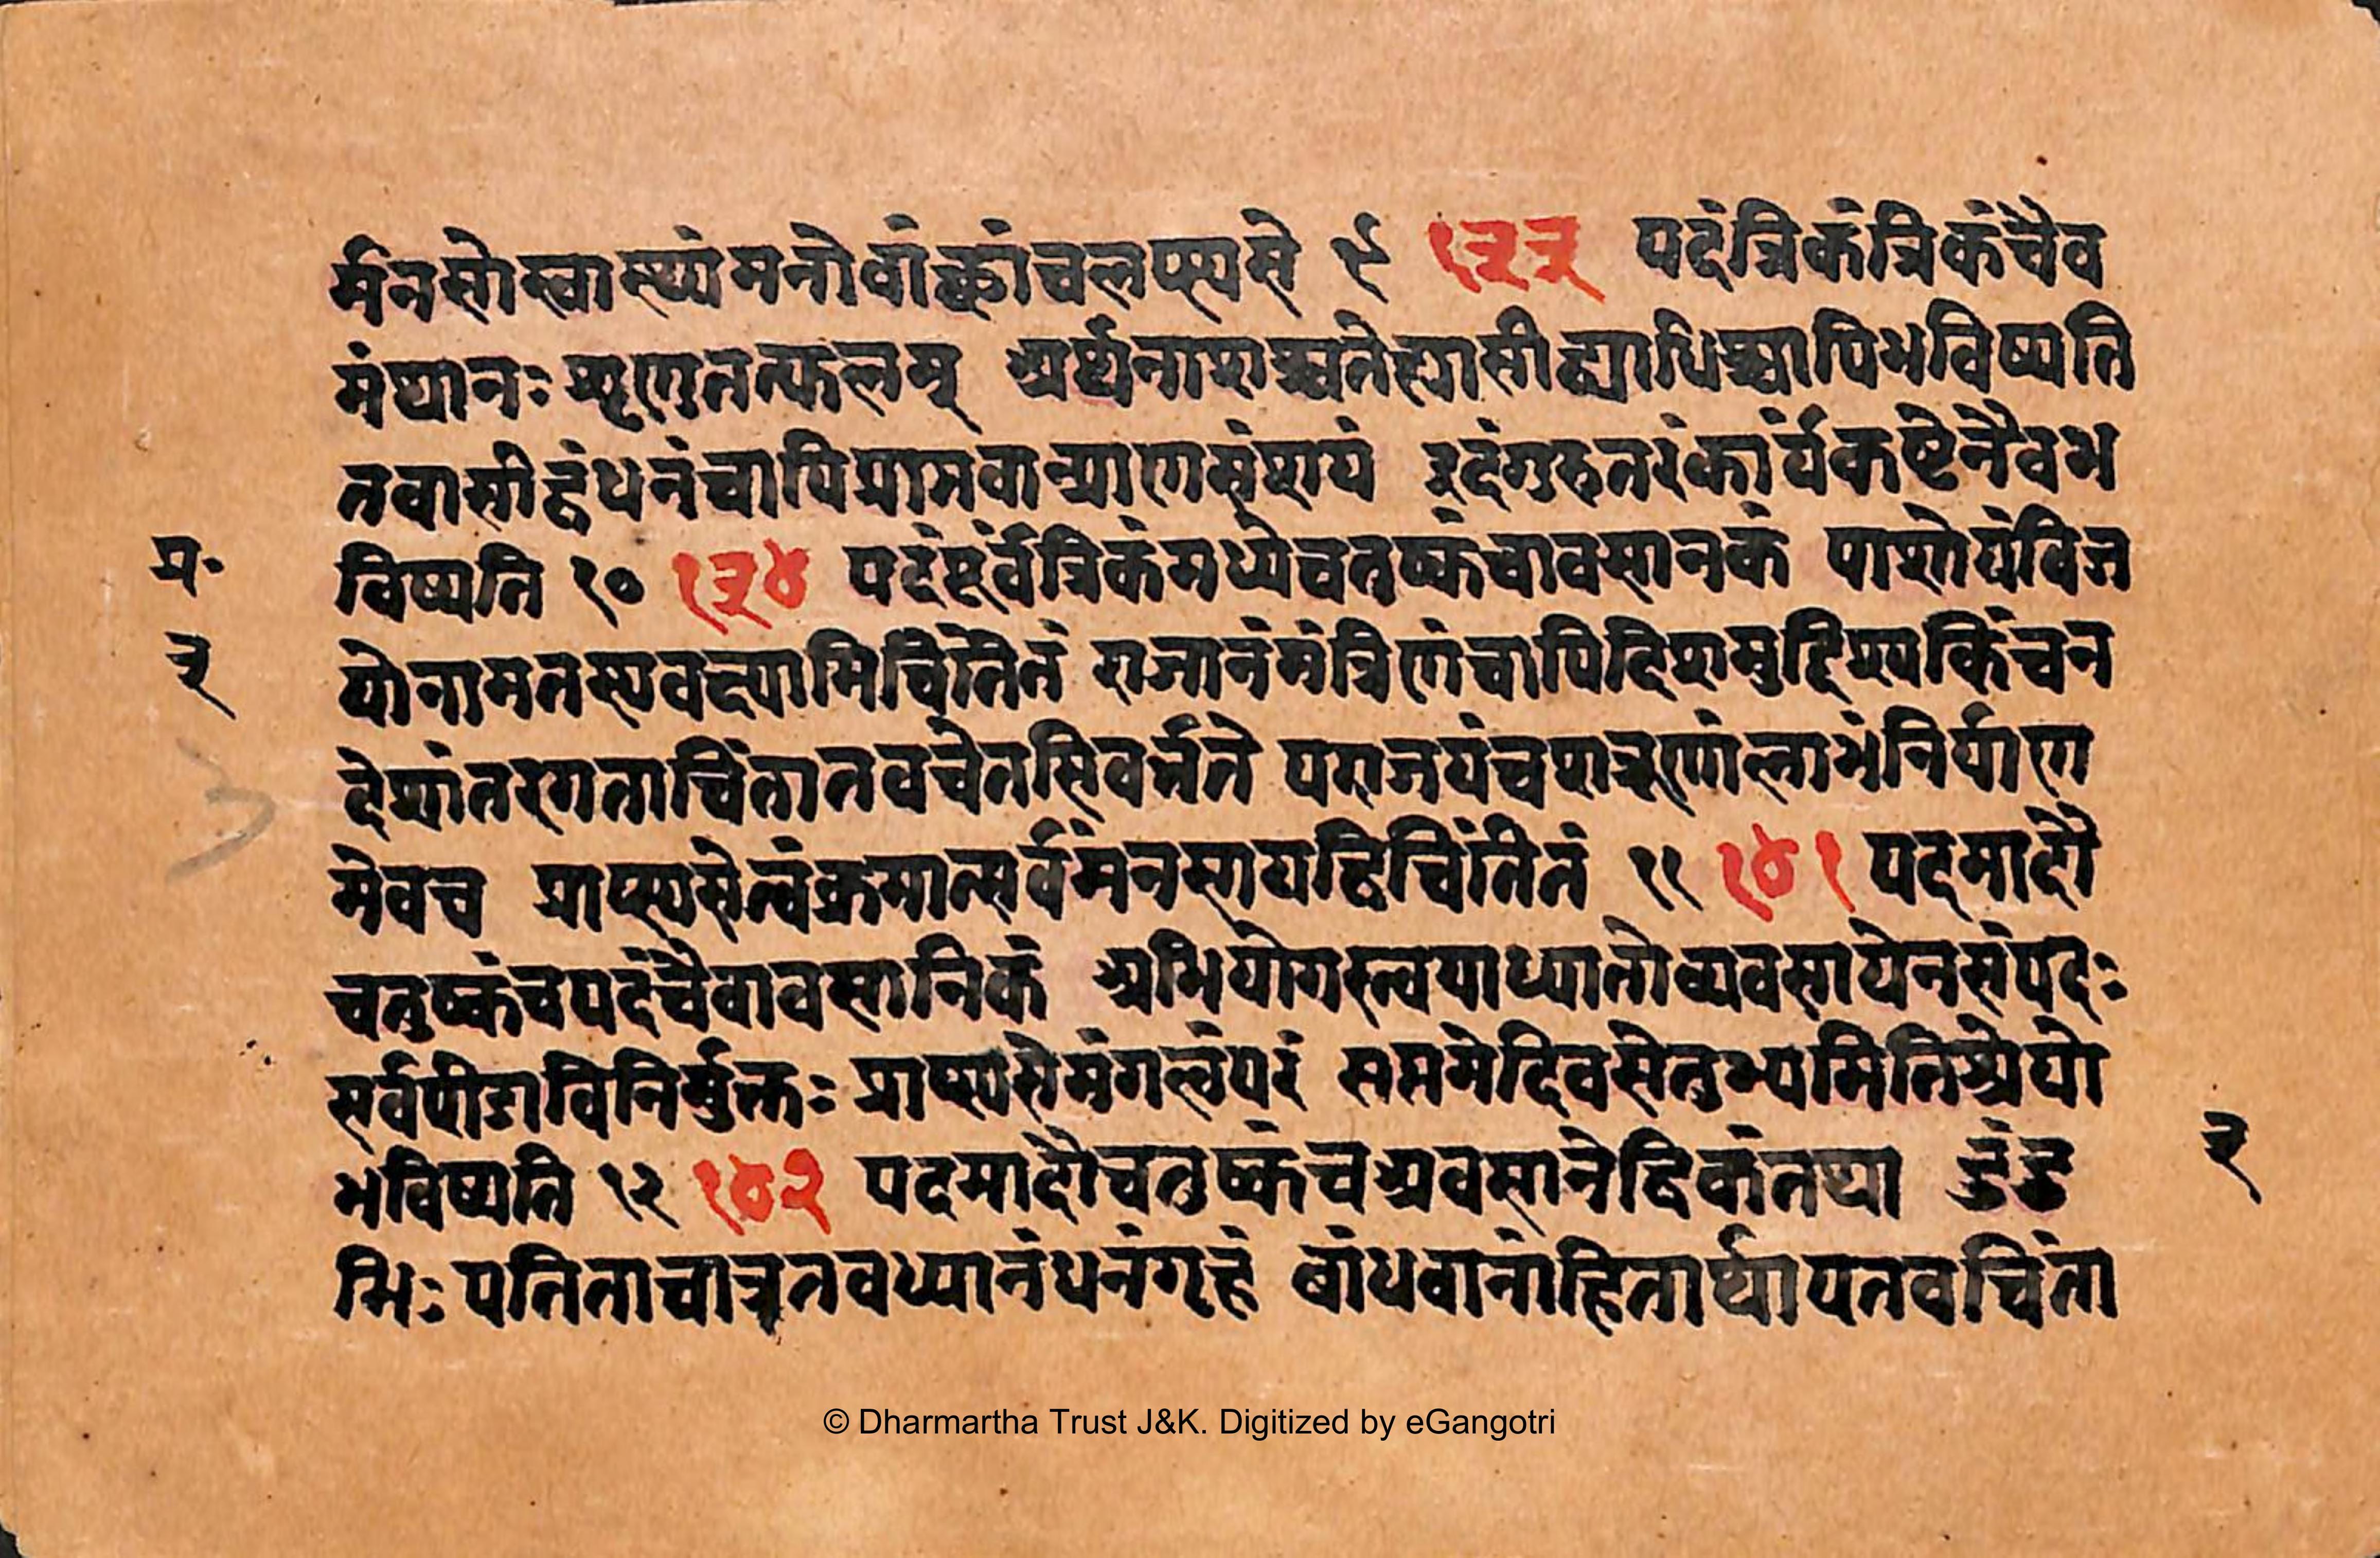 र्मनसोस्वास्थ्यंमनोवांछांचलप्स्यसे ९ १३३ पदंत्रिकंत्रिकंचैव
मंथानः शृणुतत्फलम् अर्थनाशश्चतेह्यासीद्व्याधिश्चापिभविष्यति
तवासीद्वंधनंचापिप्राप्तवान्प्राणसंशयं इदंगुरुतरंकार्यंकष्टेनैवभ
प्र॰
विष्यति १० १३४ पदंपूर्वंत्रिकंमध्येचतुष्कंचावसानकं पाशोयंविज
३
योनामतस्यवक्ष्यामिचिंतितं राजानंमंत्रिणंचापिदिशमुद्दिश्यकिंचन
देशांतरगताचिंतातवचेतसिवर्त्तते पराजयंचशत्रूणांलाभंनिर्याण
मेवच प्राप्स्यसेत्वंक्रमात्सर्वंमनसायद्विचिंतितं ११ १४१ पदमादौ
चतुष्कंचपदंचैवावसानिकं अभियोगस्त्वयाध्यातोव्यवसायेनसंपदः
सर्वपीडाविनिर्मुक्तः प्राप्स्यसेमंगलंपरं सप्तमेदिवसेतुभ्यमितिश्रेयो
भविष्यति १२ १४२ पदमादौचतुष्कंचअवसानेद्विकंतथा दुंदु
३
भिः पतिताचात्रतवध्यानंधनंगृहं बांधवानांहितार्थायतवचिंता
© Dharmartha Trust J&K. Digitized by eGangotri